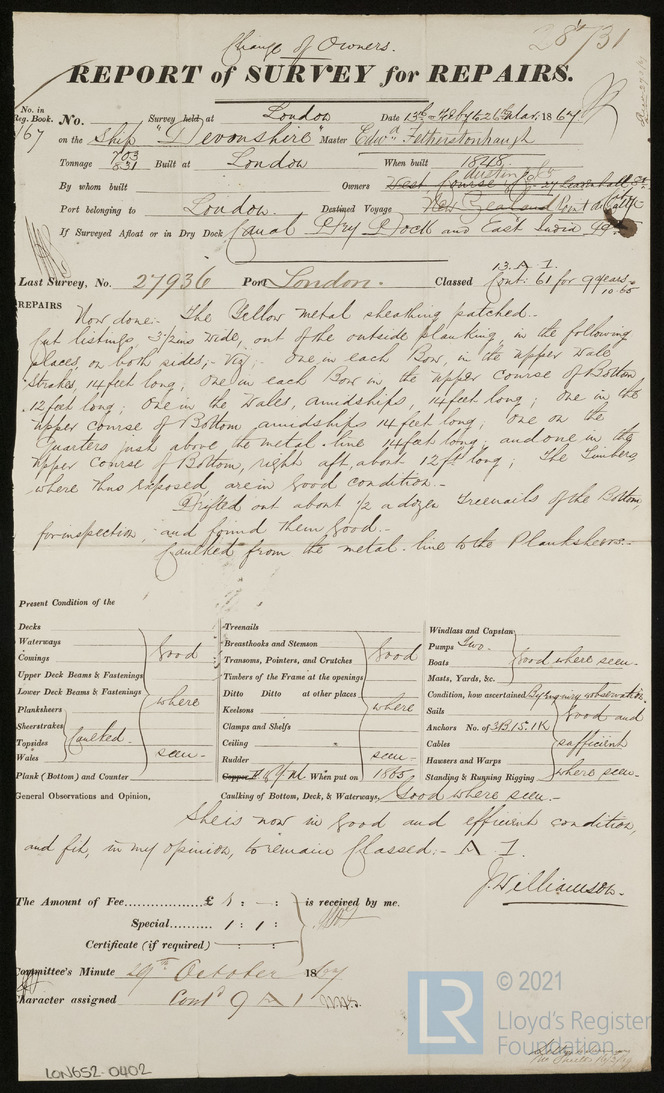 Change of Owners.
28731
REPORT of SURVEY for REPAIRS.
No. in
Reg. Book.
No. Survey held at London Date 1867
167 on the Ship "Devonshire" Master Edwd. Fetherstonhaugh
Tonnage 703 831 Built at London When built 1848
By whom built Owners
Port belonging to London. Destined Voyage New Zealand
If Surveyed Afloat or in Dry Dock Canal Dry Dock and East India
Last Survey, No. 27936 Port London. Classed 13. A 1. Cont: 61 for 9 years - 10-65
REPAIRS
Now done:- The Yellow metal sheathing patched.-
Cut listings, 3½ ins wide, out of the outside planking, in the following
places, on both sides,- Viz.- One in each Bow, in the upper Wale
Strakes, 14 feet long; One in each Bow in the upper course of Bottom
12 feet long; One in the Wales, amidships, 14 feet long; One in the
upper course of Bottom, amidships 14 feet long; One on the
Quarters just above the metal-line 14 feet long; and one in the
upper course of Bottom, right aft, about 12 ft long; The Timbers,
where thus exposed are in good condition.-
Drifted out about ½ a dozen Treenails of the Bottom,
for inspection, and found them good.-
Caulked from the metal-line to the Planksheers.-
Present Condition of the
Decks
Waterways
Comings
Upper Deck Beams & Fastenings
Lower Deck Beams & Fastenings
Planksheers
Sheerstrakes
Topsides
Wales
Caulked.
Plank (Bottom) and Counter
Good where seen-
Treenails
Breasthooks and Stemson
Transoms, Pointers, and Crutches
Timbers of the Frame at the openings
Ditto Ditto at other places
Keelsons
Clamps and Shelfs
Ceiling
Rudder
Good where seen-
Copper When put on 1865
Windlass and Capstan
Pumps Two.
Boats
Masts, Yards, &c.
Good where seen-
Condition, how ascertained By enquiry & observation
Sails
Anchors No. of 3B.1S.1K
Cables
Hawsers and Warps
Standing & Running Rigging
Good and sufficient where seen-
General Observations and Opinion, Caulking of Bottom, Deck, & Waterways, Good where seen.-
She is now in good and efficient condition,
and fit, in my opinion, to remain Classed:- A 1.
J. Williamson.
The Amount of Fee £ : - : is received by me.
Special 1 : 1 :
Certificate (if required) : :
Committee's Minute 29th October 1867
Character assigned Contd 9 A 1
© 2021
LR
Lloyd's Register
Foundation
LON652-0402